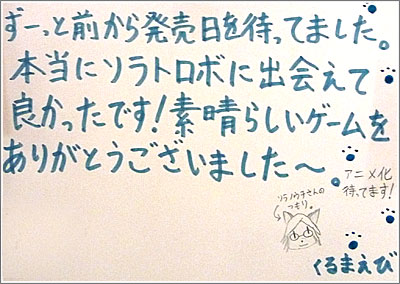 ずーっと前から発売日を待ってました。
本当にソラトロボに出会えて
良かったです！素晴らしいゲームを
ありがとうございました〜。
アニメ化
待ってます！
ソラノウチさんの
つもり。
くるまえび